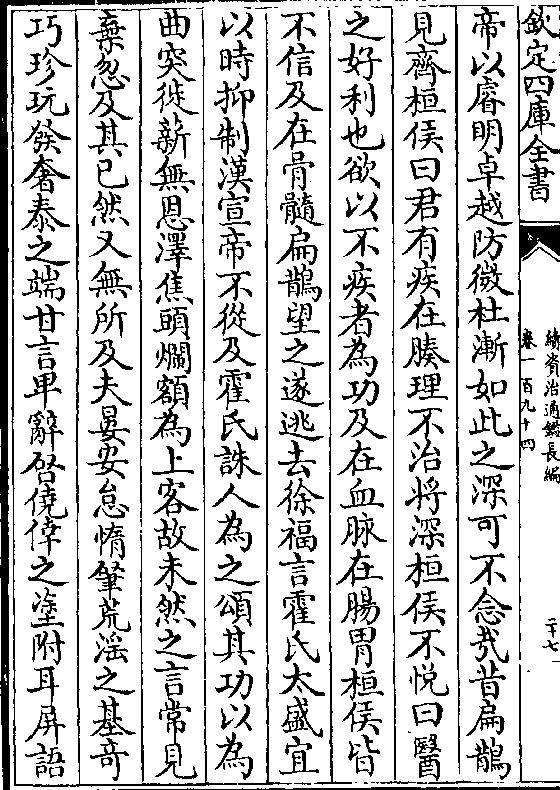 欽定四庫全書
續資治通鑑長編
卷一百九十四
二十七
帝以睿明卓越防微杜漸如此之深可不念哉昔扁鵲
見齊桓侯曰君有疾在腠理不治將深桓侯不悅曰醫
之好利也欲以不疾者為功及在血脉在腸胃桓侯皆
不信及在骨髓扁鵲望之遂逃去徐福言霍氏太盛宜
以時抑制漢宣帝不從及霍氏誅人為之頌其功以為
曲突徙薪無恩澤焦頭爛額為上客故未然之言常見
棄忽及其已然又無所及夫晏安怠惰肇荒淫之基奇
巧珍玩發奢泰之端甘言卑辭啓僥倖之塗附耳屏語